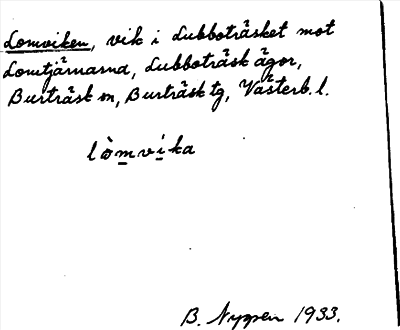 Lomviken, vik i Lubboträsket mot
Lomtjärnarna, Lubboträsk ägor,
Burträsk sn, Burträsk tg, Västerb. l.
lòm̲vi̲ka
B. Nyppen 1933.